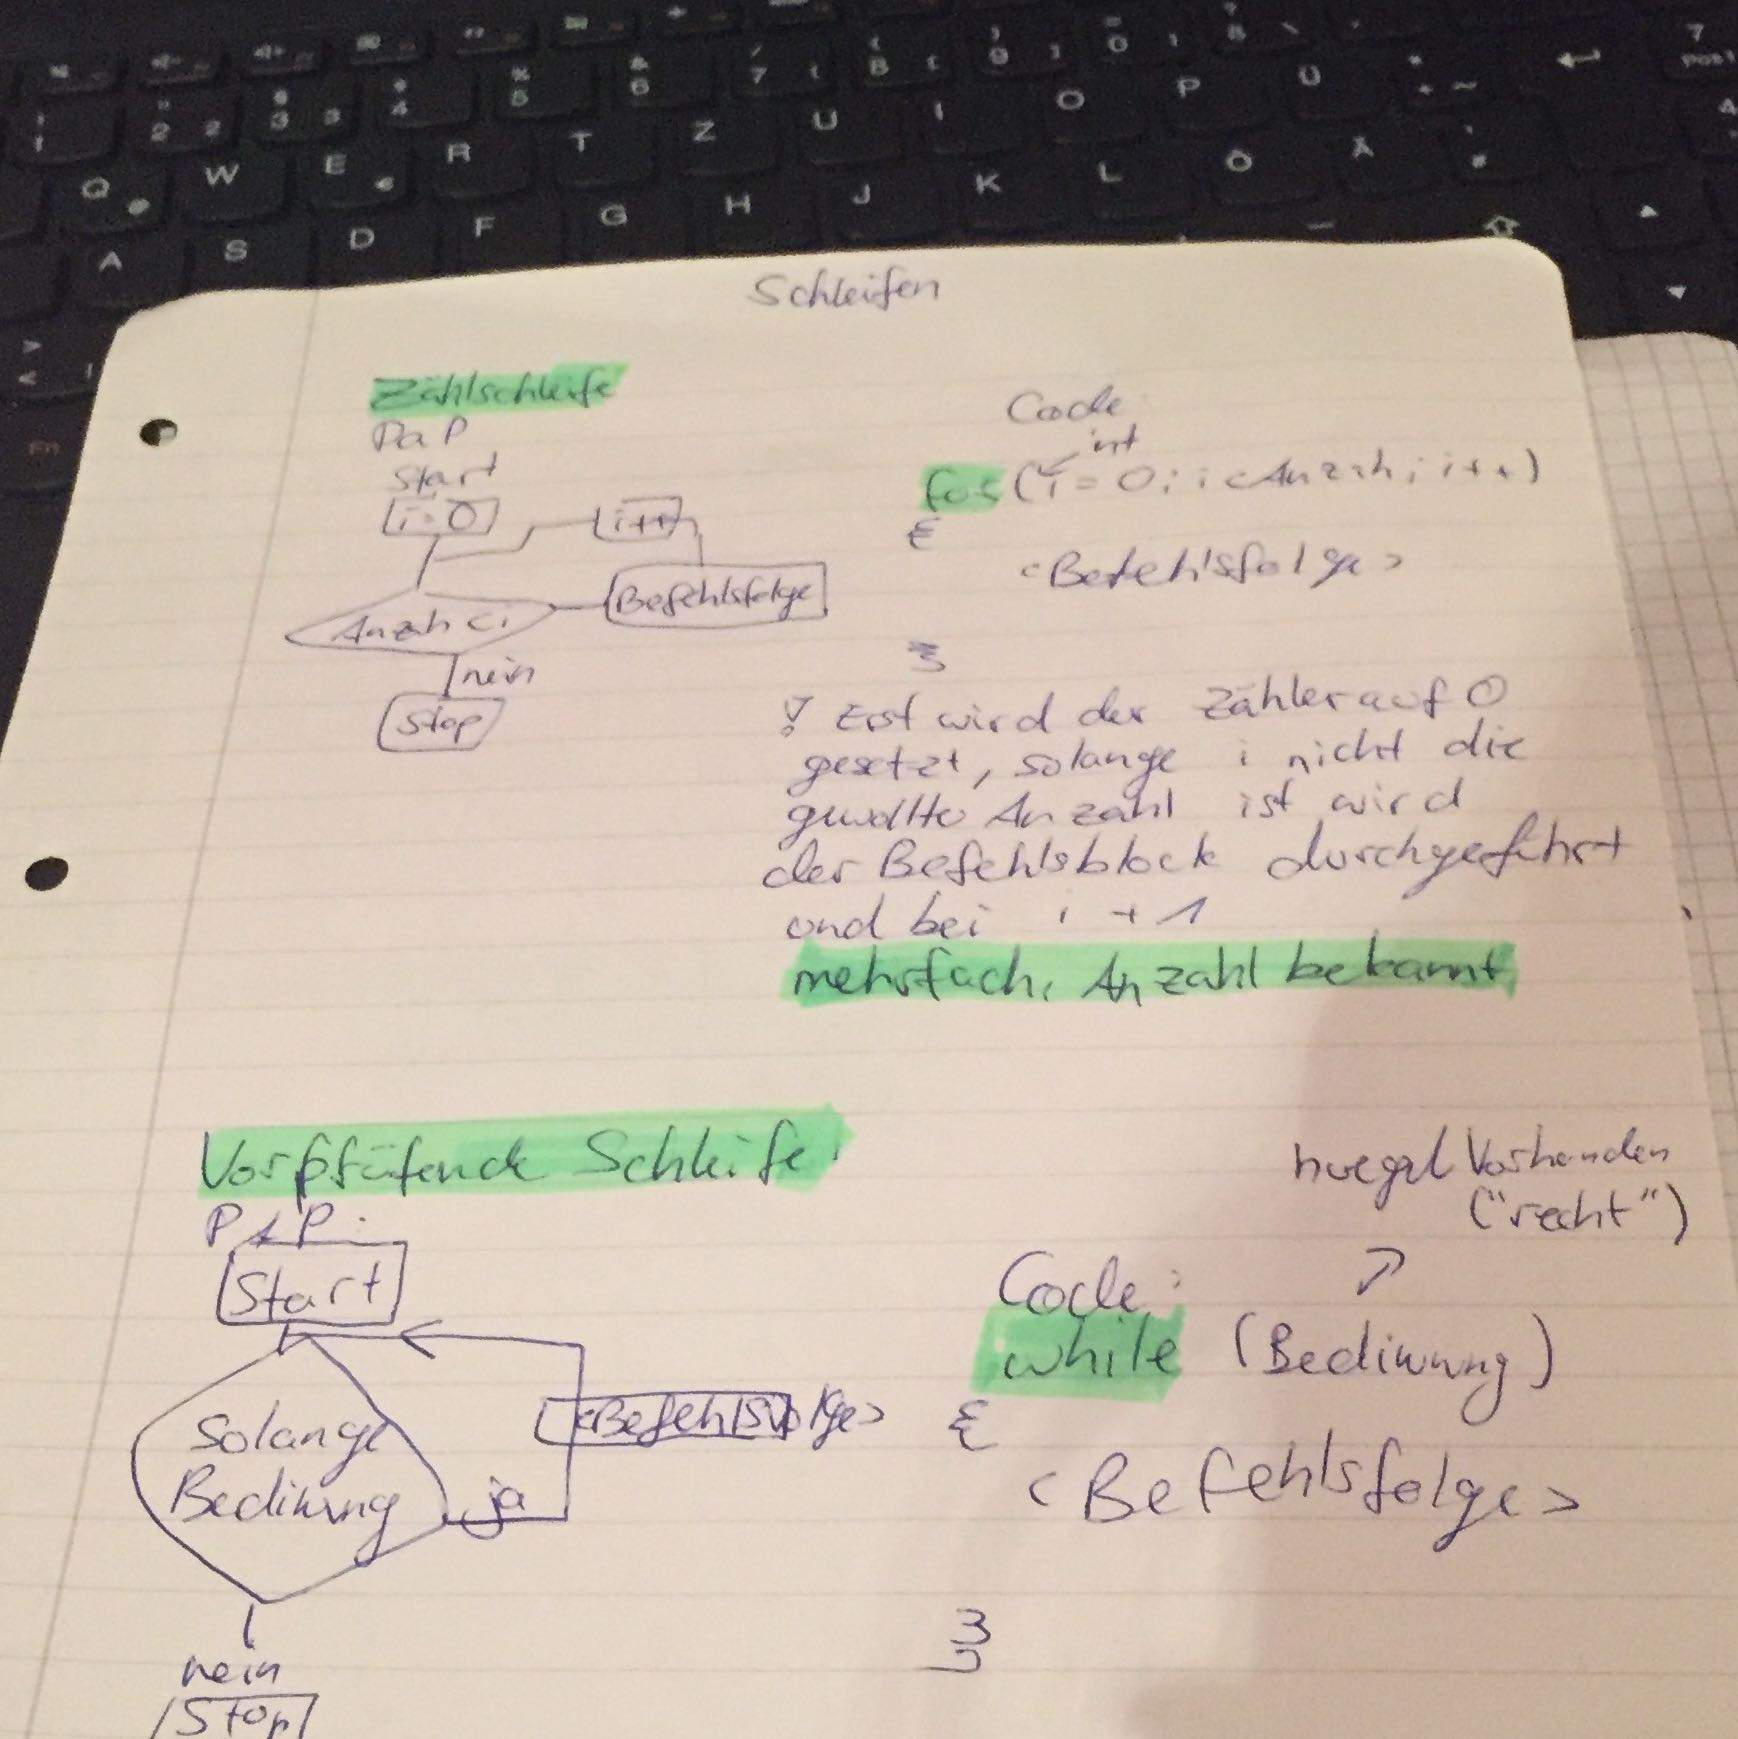 Schleifen
Zählschleife
PaP
Start
i=0
i++
Befehlsfolge
Anzah < i
nein
Stop
Code
int
for (i = 0; i < Anzah; i++)
{
<Befehlsfolge>
}
! Erst wird der Zähler auf 0
gesetzt, solange i nicht die
gewollte Anzahl ist wird
der Befehlsblock durchgeführt
und bei i +1
mehrfach, Anzahl bekannt
Vorprüfende Schleife:
PAP:
Start
Solange
Bedinung
ja
<Befehlsfolge>
nein
Stop
Vorhanden
("recht")
Code:
while (Bedinung)
{
<Befehlsfolge>
}
Q W E R T Z U I O P Ü
A S D F G H J K L Ö Ä
Fn